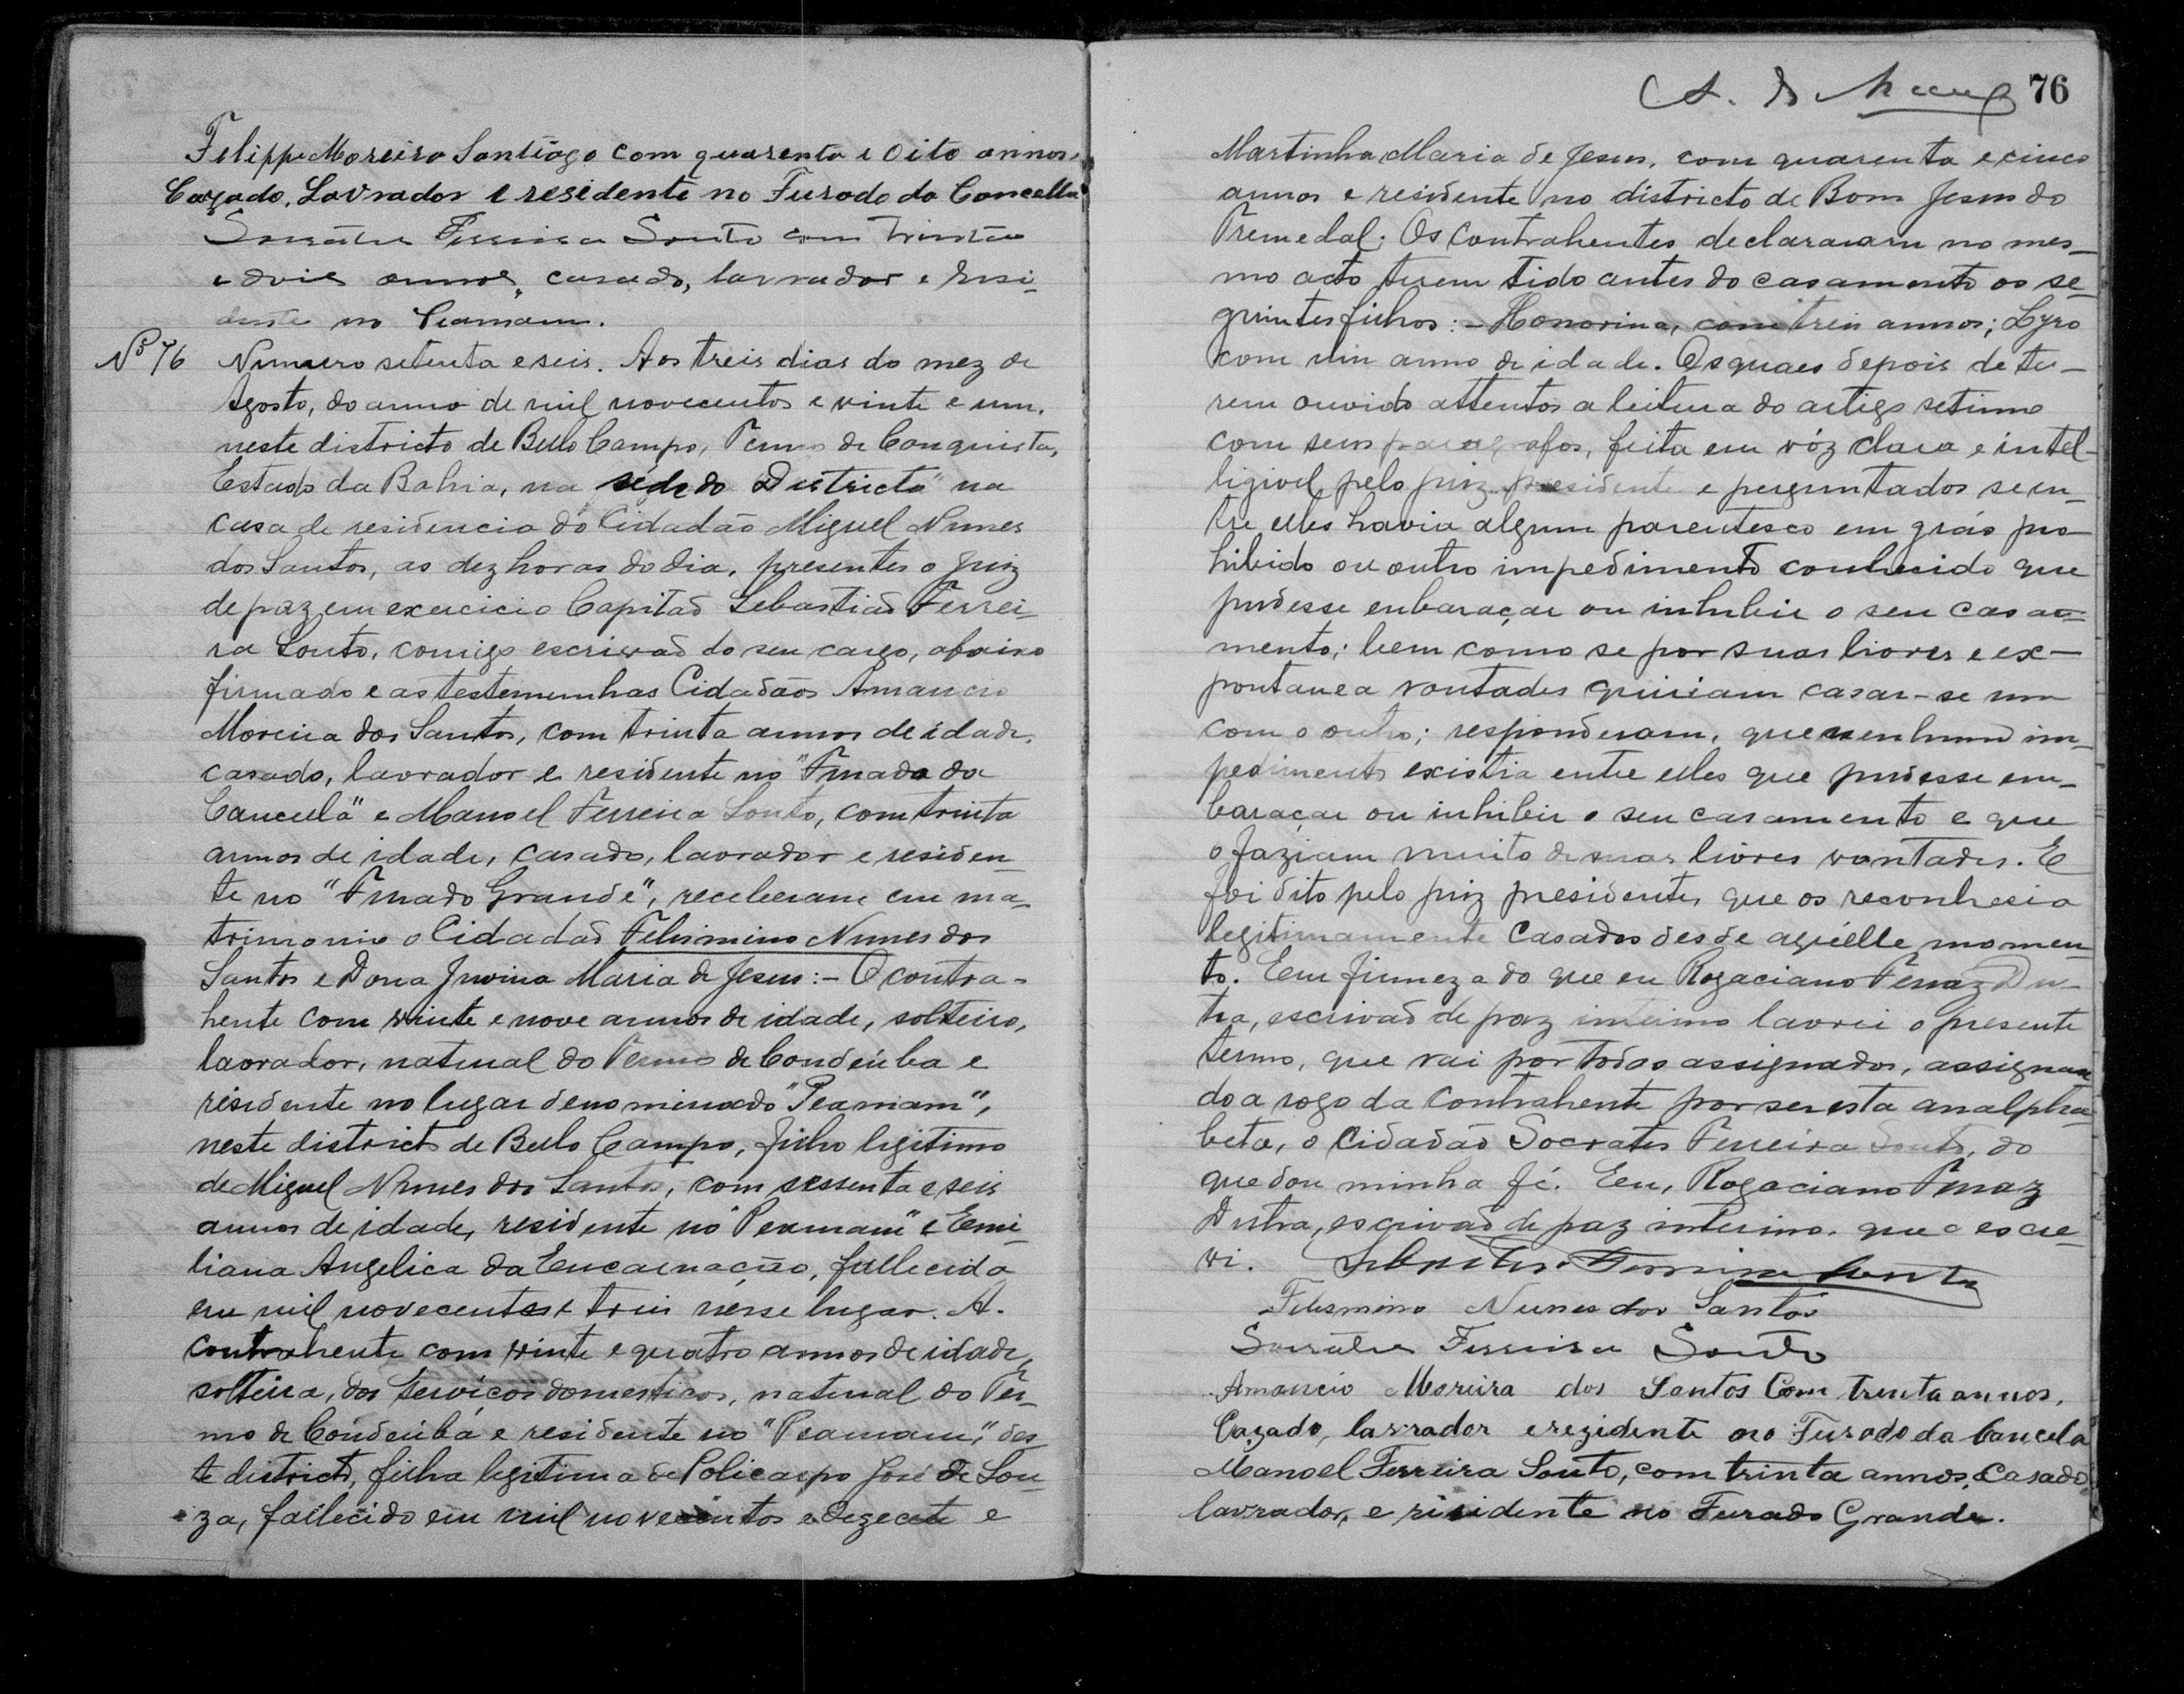 Filippe Moreira Santiago com quarenta e oito annos,
Cazado, Lavrador e residente no Furado da Cancella
Socrates Ferreira Souto com trinta
e dois annos, casado, lavrador e resi-
dente no Peamam.
Nº 76 Numero setenta e seis. Aos treis dias do mez de
Agosto, do anno de mil novecentos e vinte e um,
neste districto de Bello Campo, Termo de Conquista,
Estado da Bahia, na séde do Districto" na
casa de residencia do Cidadão Miguel Nunes
dos Santos, as dez horas do dia, presentes o juiz
de paz em exercicio Capitão Sebastião Ferrei-
ra Souto, comigo escrivão do seu cargo, abaixo
firmado e as testemunhas Cidadãos Amancio
Moreira dos Santos, com trinta annos de idade,
casado, lavrador e residente no "Furado da
Cancella" e Manoel Ferreira Souto, com trinta
annos de idade, casado, lavrador e residen-
te no "Furado Grande", receberam em ma-
trimonio o Cidadão Felismino Nunes dos
Santos e Dona Juvina Maria de Jesus:- O contra-
hente com vinte e nove annos de idade, solteiro,
lavrador, natural do Termo de Condeúba e
residente no lugar denominado "Peamam",
neste districto de Bello Campo, filho legitimo
de Miguel Nunes dos Santos, com sessenta e seis
annos de idade, residente no "Peamam" e Emi-
liana Angelica da Encarnação, fallecida
em mil novecentos e treis nesse lugar. A
contrahente com vinte e quatro annos de idade,
solteira, dos serviços domesticos, natural do Ter-
mo de Condeúba e residente no "Peamam", des-
te districto, filha legitima de Policarpo José de Sou-
za, fallecido em mil novecentos e dezecete e
A. 76
Martinha Maria de Jesus, com quarenta e cinco
annos e residente no districto de Bom Jesus do
Tremedal. Os contrahentes declararam no mes-
mo acto terem tido antes do casamento os se-
guintes filhos:- Honorina, com treis annos; Lyro
com um anno de idade. Os quaes depois de te-
rem ouvido attentos a leitura do artigo setimo
com seus paragrafos, feita em vóz clara e intel-
ligivel pelo juiz presidente e perguntados se en-
tre elles havia algum parentesco em gráo pro-
hibido ou outro impedimento conhecido que
pudesse enbaraçar ou inhibir o seu casa-
mento; bem como se por suas livres e ex-
pontanea vontades queriam casar-se um
com o outro; responderam, que nenhum im-
pedimento existia entre elles que pudesse em-
baraçar ou inhibir o seu casamento e que
o faziam muito de suas livres vontades. E
foi dito pelo juiz presidente, que os reconhecia
legitimamente Casados desde aquelle momen-
to. E em firmeza do que eu Rogaciano Ferraz Du-
tra, escrivão de paz interino lavrei o presente
termo, que vai por todos assignados, assignan
do a rogo da Contrahente por ser esta analpha-
beta, o Cidadão Socrates Ferreira Souto, do
que dou minha fé. Eu, Rogaciano Ferraz
Dutra, escrivão de paz interino, que o escre-
vi. Sebastião Ferreira Souto
Felismino Nunes dos Santos
Socrates Ferreira Souto
Amancio Moreira dos Santos Com trinta annos,
Cazado, lavrador e rezidente no Furado da Cancela
Manoel Ferreira Souto, com trinta annos, Casado
lavrador, e risidente no Furado Grande.